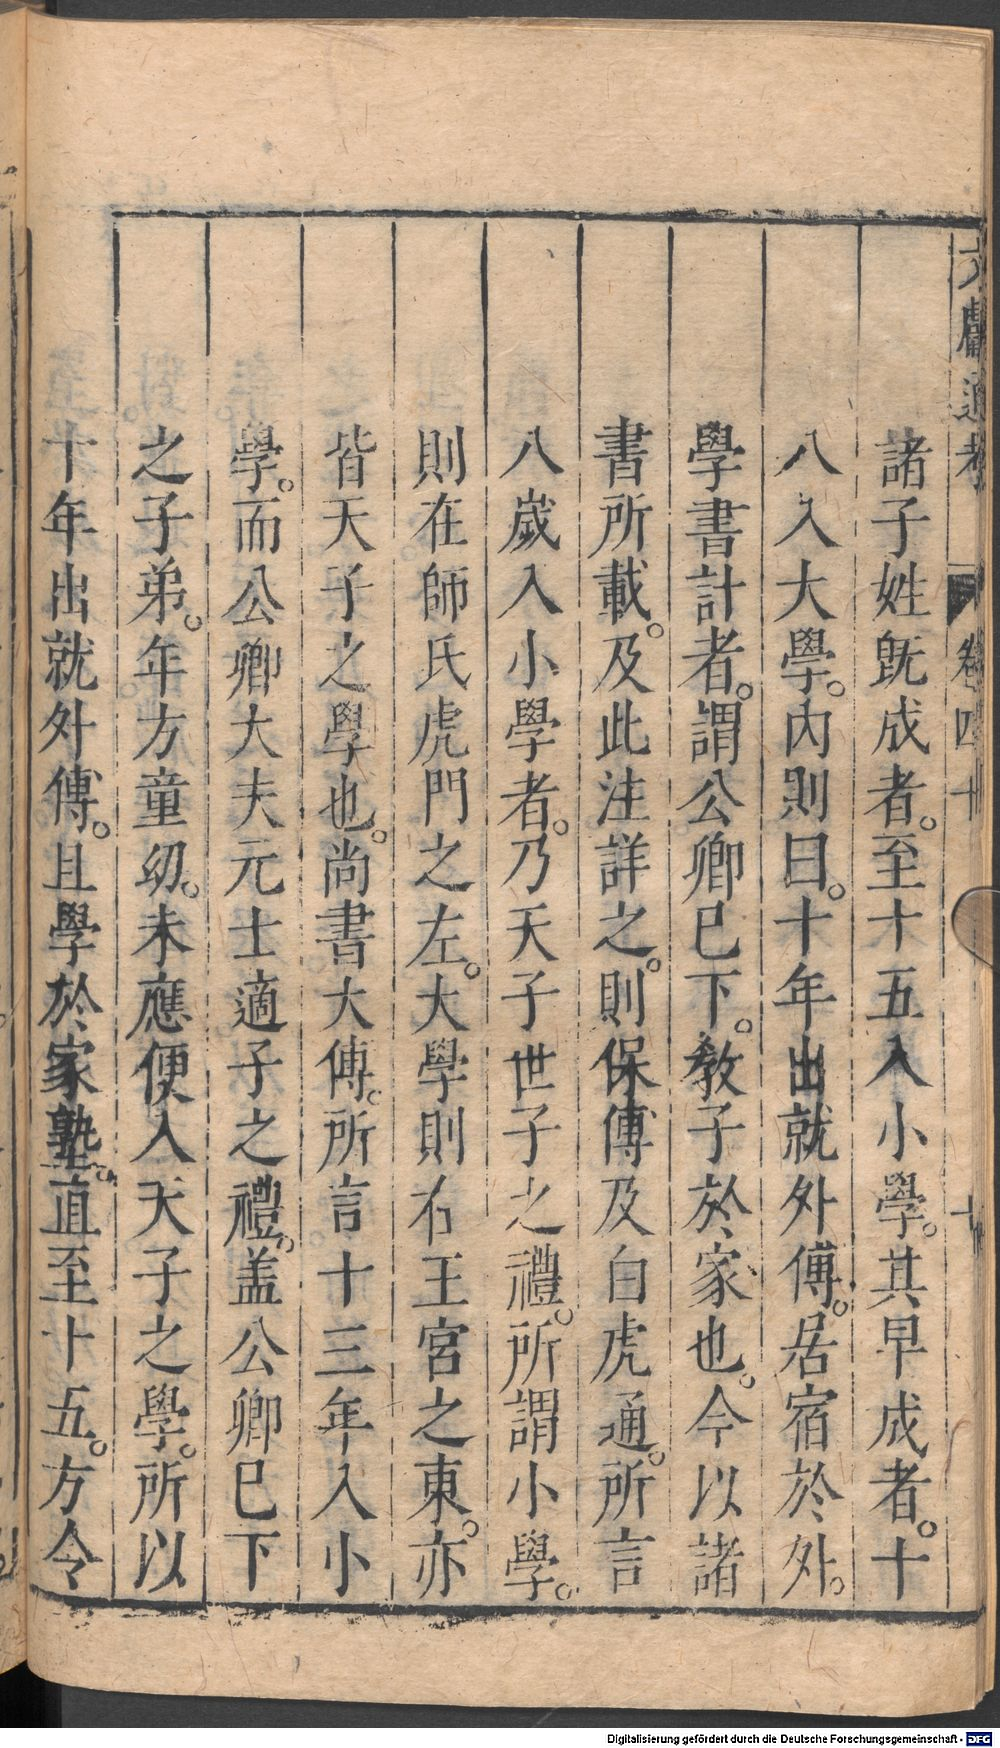 文獻通考 卷四十 十
諸子姓旣成者。至十五入小學。其早成者。十
八入大學。內則曰。十年出就外傅。居宿於外。
學書計者。謂公卿已下。敎子於家也。今以諸
書所載。及此注詳之。則保傅及白虎通。所言
八歲入小學者。乃天子世子之禮。所謂小學。
則在師氏虎門之左。大學則右王宮之東。亦
皆天子之學也。尚書大傅。所言十三年入小
學。而公卿大夫元士適子之禮。盖公卿已下
之子弟。年方童㓜。未應便入天子之學。所以
十年出就外傅。且學於家塾。直至十五。方令
Digitalisierung gefördert durch die Deutsche Forschungsgemeinschaft - DFG